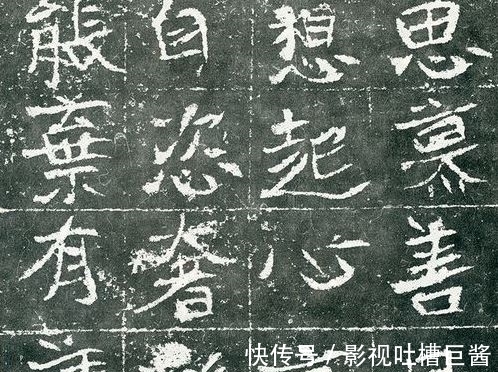 思善
想起心
自恣奢
能棄有
快传号/影视吐槽巨酱